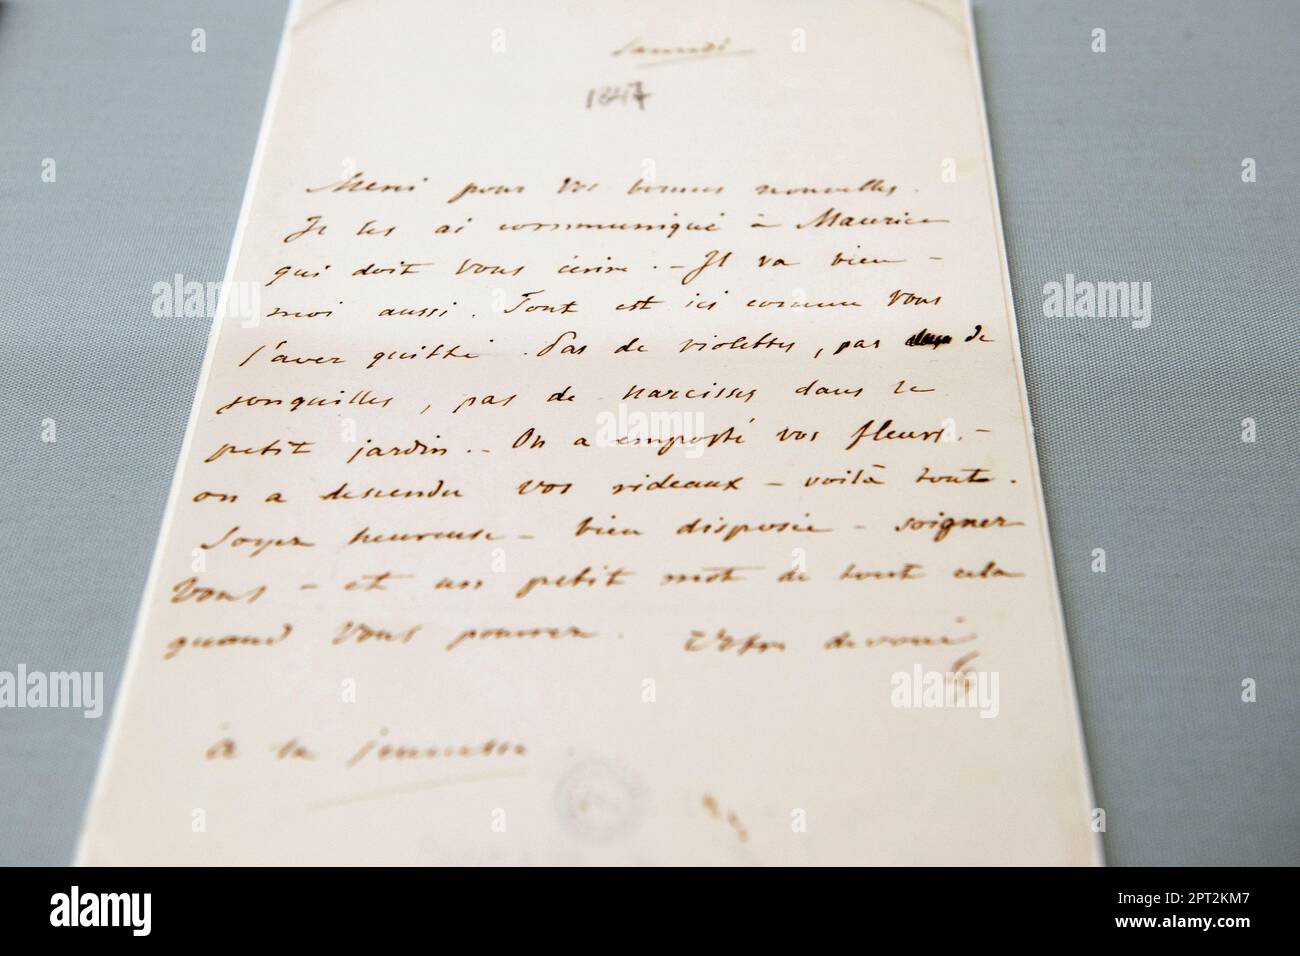 Samedi
1847
Merci pour vos bonnes nouvelles.
Je les ai communiqué à Maurice
qui doit vous écrire. - Il va bien -
moi aussi. Tout est ici comme vous
l'avez quitté. Pas de violettes, pas de
jonquilles, pas de narcisses dans le
petit jardin. - On a emporté vos fleurs, -
on a descendu vos rideaux - voilà tout.
Soyez heureuse - bien disposée - soignez
vous - et un petit mot de tout cela
quand vous pourrez. Votre dévoué
à la jeunesse
alamy
alamy
alamy
alamy
alamy
alamy
Image ID: 2PT2KM7
www.alamy.com